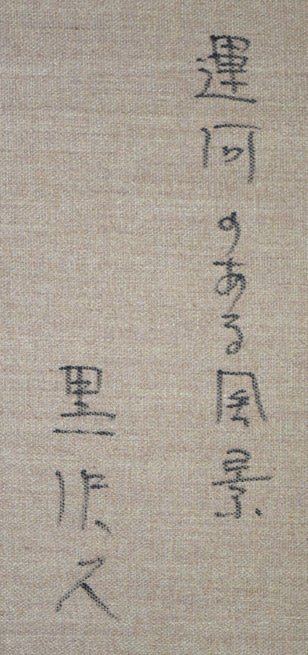 運河のある風景
黒沢久